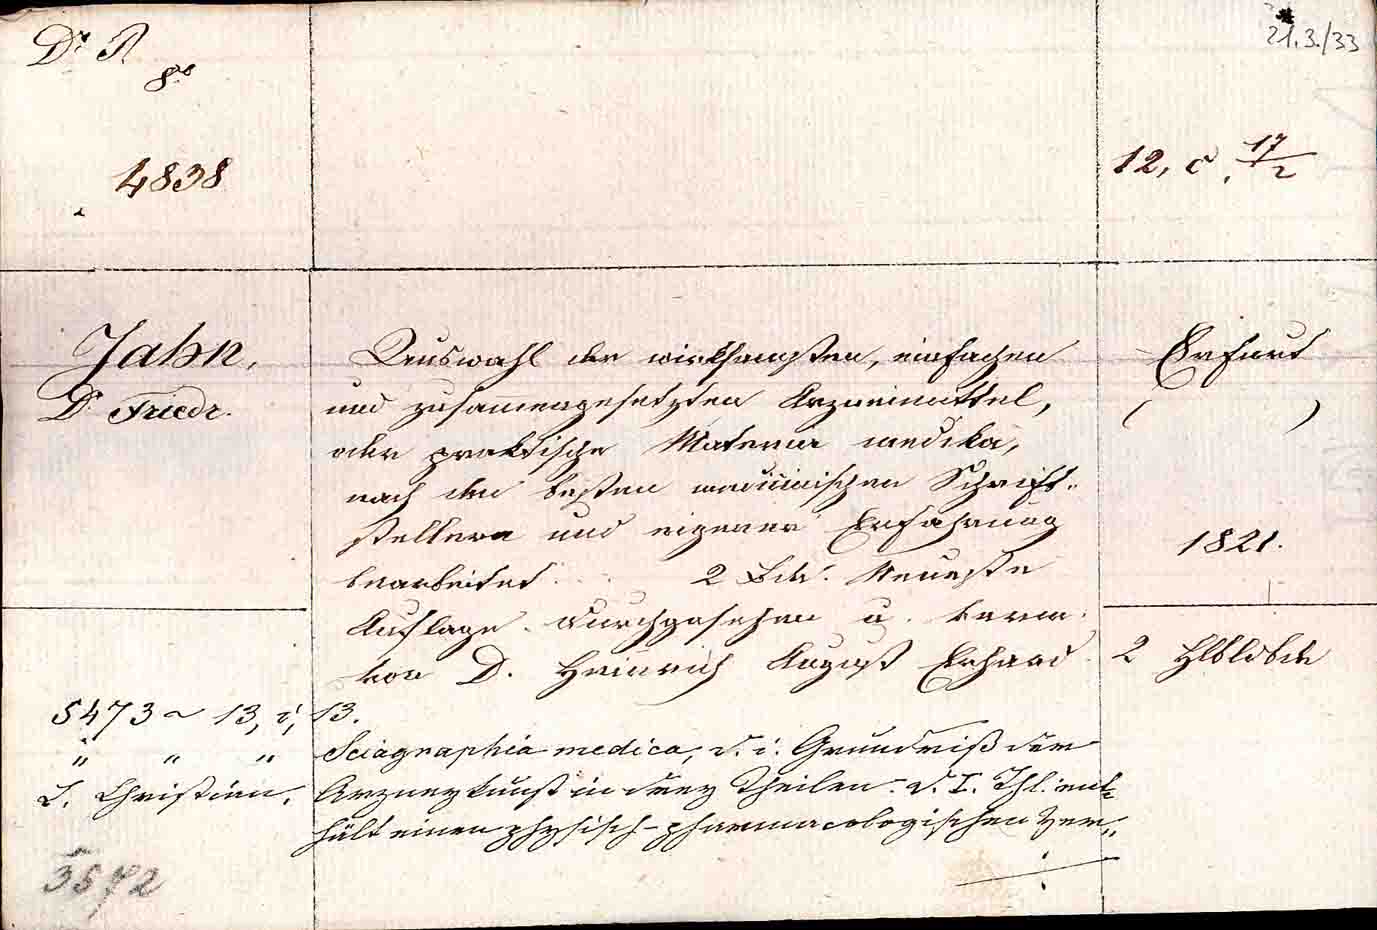 Dr. R
21.3./33
8o
4838
12, c, 17/2
Jahn,
Dr. Friedr.
Auswahl der wirksamsten, einfachen
und zusammengesetzten Arzneimittel,
oder praktische Materia medika,
nach den besten medizinischen Schrift-
stellern und eigener Erfahrung
bearbeitet 2 Bde. Neueste
Auflage. durchgesehen u. verm.
von D. Heinrich August Erhard
Erfurt
( )
1821.
2 Hlbldbde
5473 ~ 13, i, 13.
" " "
D. Christian.
Sciagraphia medica, d. i. Grundriß der
Arzneykunst in drey Theilen. d. I. Thl. ent-
hält einen physisch-pharmacologischen Ver-
3572